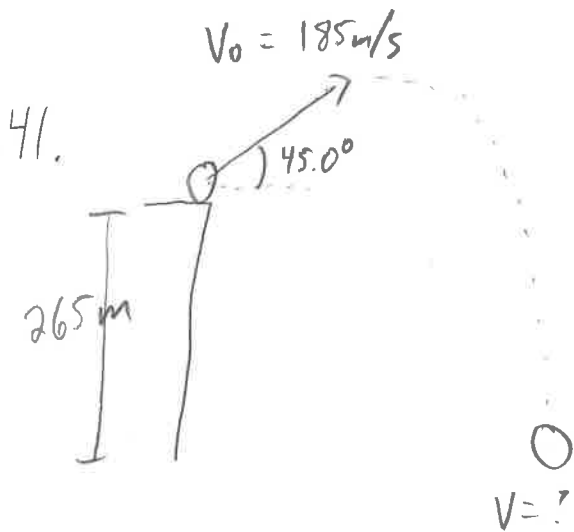 V₀ = 185m/s
41.
45.0°
265m
V = ?